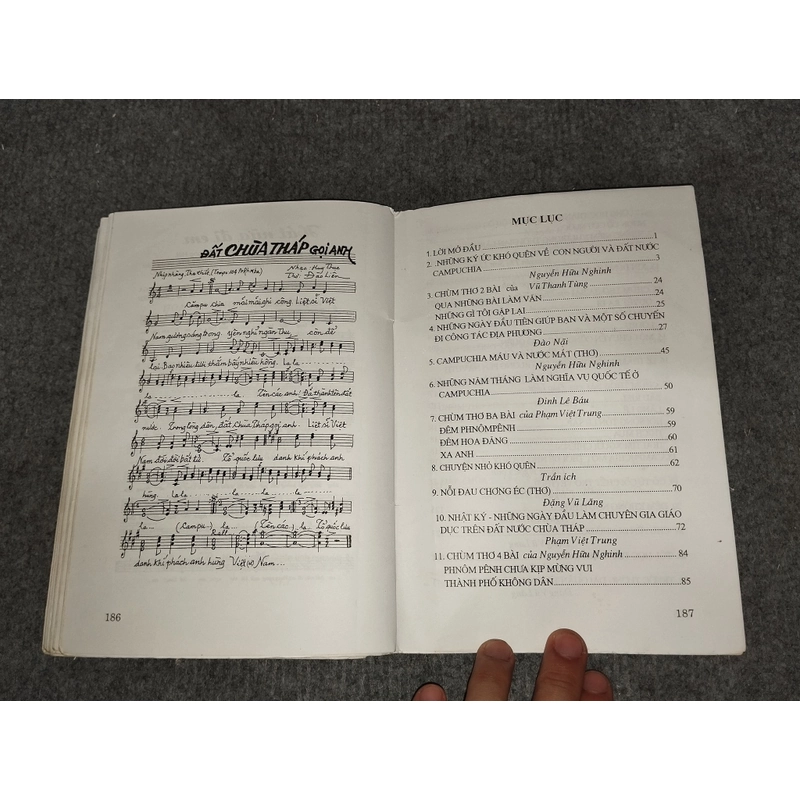 ĐẤT CHÙA THÁP GỌI ANH
Nhạc: Huy Thục
Thơ: Đào Liên
Campu chia mãi mãi ghi công. Liệt sĩ Việt
Nam gương sáng trong yên nghỉ ngàn thu, còn để
lại. Bao nhiêu tươi thắm bấy nhiêu hồng. La la
la la. Tên các anh! Đã thành tên đất
nước. Trong lòng dân, đất Chùa Tháp gọi anh. Liệt sĩ Việt
Nam đời đời bất tử. Tổ quốc lưu danh khí phách anh
hùng. La la la... la... la... la...
la... (Campu) la... (Tên các) la. Tổ quốc lưu
danh khí phách anh hùng Việt Nam...
186
MỤC LỤC
1. LỜI MỞ ĐẦU 1
2. .NHỮNG KÝ ỨC KHÓ QUÊN VỀ CON NGƯỜI VÀ ĐẤT NƯỚC
CAMPUCHIA 3
Nguyễn Hữu Nghinh
3. CHÙM THƠ 2 BÀI của Vũ Thanh Tùng 24
QUA NHỮNG BÀI LÀM VĂN 24
NHỮNG GÌ TÔI GẶP LẠI 25
4. NHỮNG NGÀY ĐẦU TIÊN GIÚP BẠN VÀ MỘT SỐ CHUYẾN
ĐI CÔNG TÁC ĐỊA PHƯƠNG 27
Đào Nãi
5. CAMPUCHIA MÁU VÀ NƯỚC MẮT (THƠ) 45
Nguyễn Hữu Nghinh
6. NHỮNG NĂM THÁNG LÀM NGHĨA VỤ QUỐC TẾ Ở
CAMPUCHIA 50
Đinh Lê Báu
7. CHÙM THƠ BA BÀI của Phạm Việt Trung 59
ĐÊM PHNÔMPÊNH 59
ĐÊM HOA ĐĂNG 60
XA ANH 61
8. CHUYỆN NHỎ KHÓ QUÊN 62
Trần ích
9. NỖI ĐAU CHƠNG ÉC (THƠ) 70
Đặng Vũ Lăng
10. NHẬT KÝ - NHỮNG NGÀY ĐẦU LÀM CHUYÊN GIA GIÁO
DỤC TRÊN ĐẤT NƯỚC CHÙA THÁP 72
Phạm Việt Trung
11. CHÙM THƠ 4 BÀI của Nguyễn Hữu Nghinh 84
PHNÔM PÊNH CHƯA KỊP MỪNG VUI
THÀNH PHỐ KHÔNG DÂN 85
187